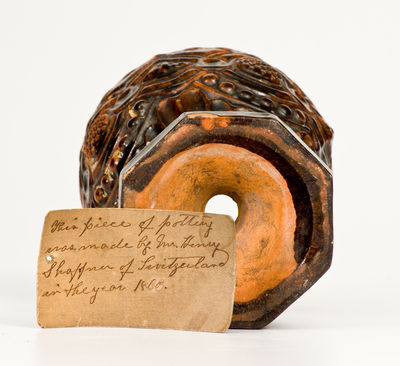 This piece of pottery
was made by Mr. Henry
Shaffner of Switzerland
in the year 1860.